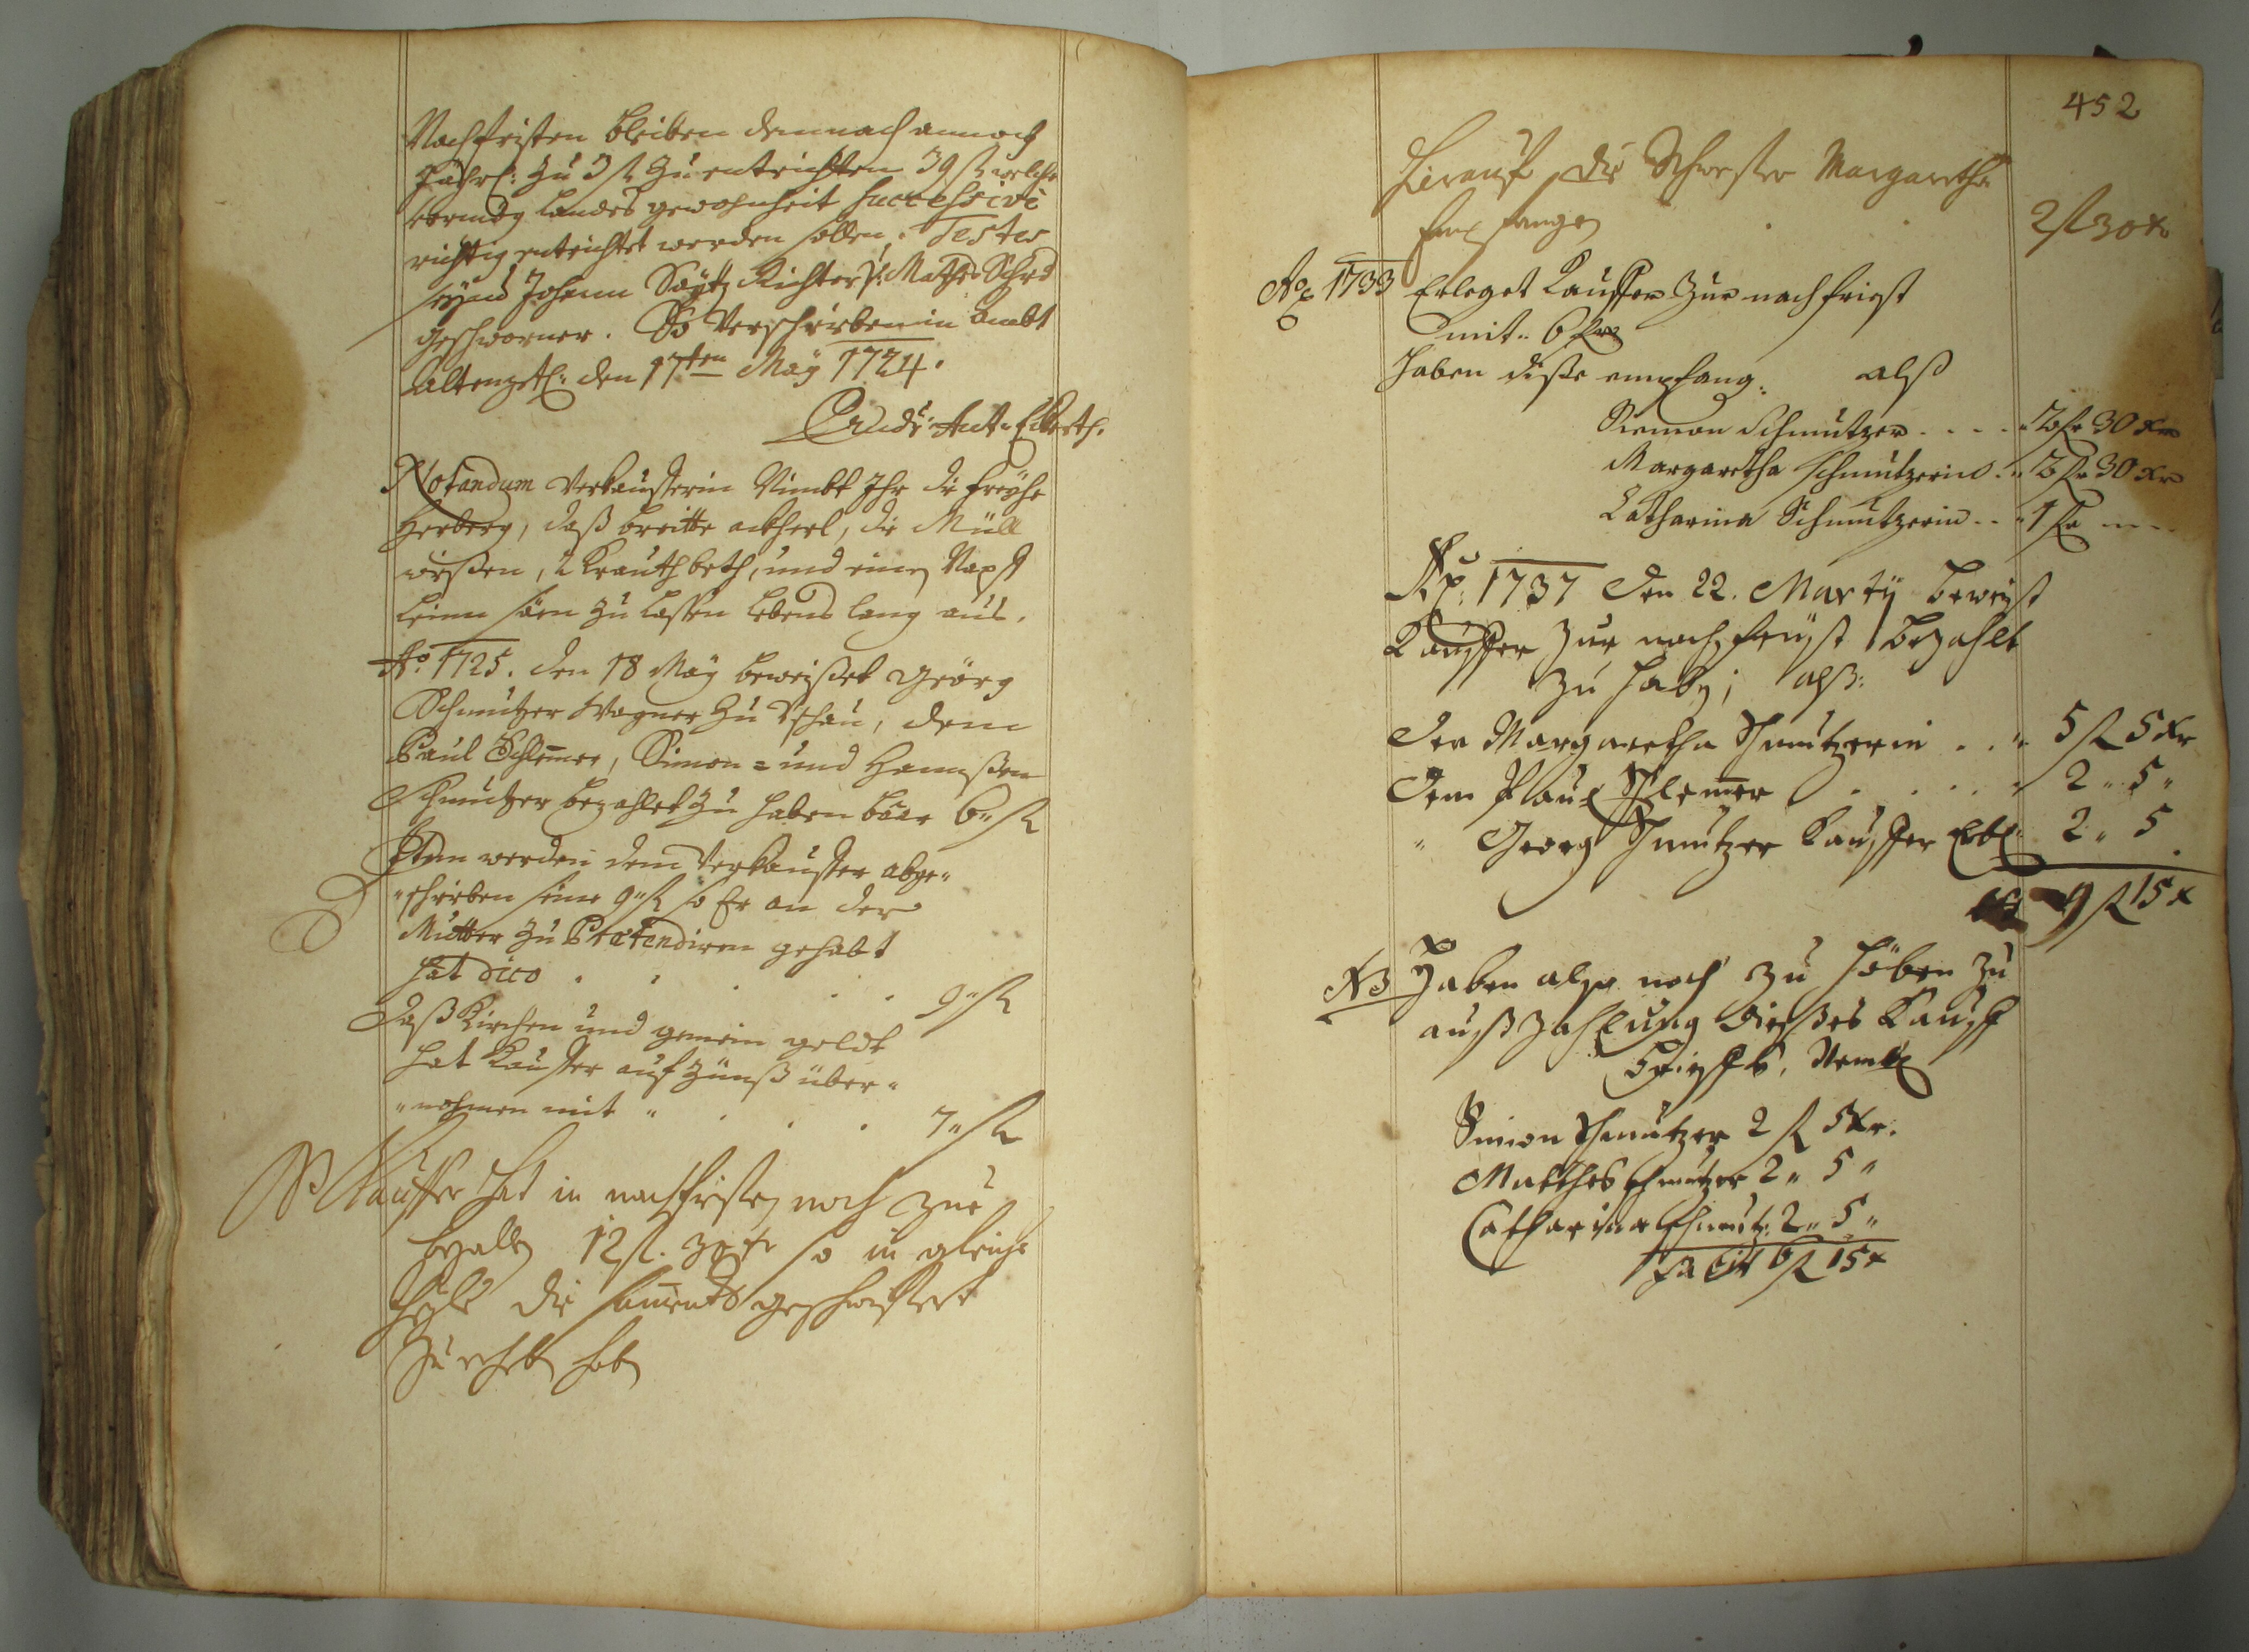 Nachfristen bleiben demnach annoch
Jährl: zu 3 fl zu entrichten 39 fl welche
vermög landes gewohnheit Successive
richtig entrichtet werden sollen. Testes
seynd Johann Richter Mathes
geschworner. So Verschrieben in Ambt
den 17ten May 1724.
Notandum Verkaufferin Nimbt Ihr die freyhe
Herberg, daß breitte ackherl, die Müll
wießen, 2 Krauthbeth, und einen Napf
Leinn säen zu lassen lebens lang aus.
Ao. 1725. den 18 May beweißet Geörg
Schmutzer Wagner zu Tschau, dem
Paul Schlemer, Simon = und Hannßen
Schmutzer bezahlet zu haben baar 6" fl
Item werden dem Verkauffer abge-
"schrieben seine 9" fl so Er an der
Mutter zu Praetendiren gehabt
hat dico . . . . 9" fl
Daß Kirchen und gemein geldt
hat Kauffer auf Zünß über-
"nohmen mit " . . . 7" fl
Kauffer hat in nachfristen noch zue
bezallen 12 fl. 30 xr so in gleiche
theyle die sament geschwistert
zu erheben haben
452
Hierauf die Schwester Margaretha
Empfangen . . 2 fl 30 xr
Ao 1733 Erleget Kauffer zur nachfriest
mit " 6 fl
haben diße empfang: alß
Siemon Schmutzer . . . . " 2 fl 30 xr
Margaretha Schmutzerin . " 2 fl 30 xr
Catharina Schmutzerin . . " 1 fl
Ao: 1737 den 22. Marty beweist
Kauffer zur nachfryst bezahlt
zu haben; alß:
Der Margaretha Schmutzerin . . " 5 fl 5 xr
Dem Paul Schlemer . . . . 2 " 5 "
" Georg Schmutzer Kauffer Erbl. 2 " 5
9 fl 15 x
NB Haben also noch zu höben zu
außzahlung dießes Kauff
Nembl
Simon Schmutzer 2 fl 5 xr.
Matthes Schmutzer 2 " 5 "
Catharina Schmutz: 2 " 5 "
Facit 6 fl 15 x